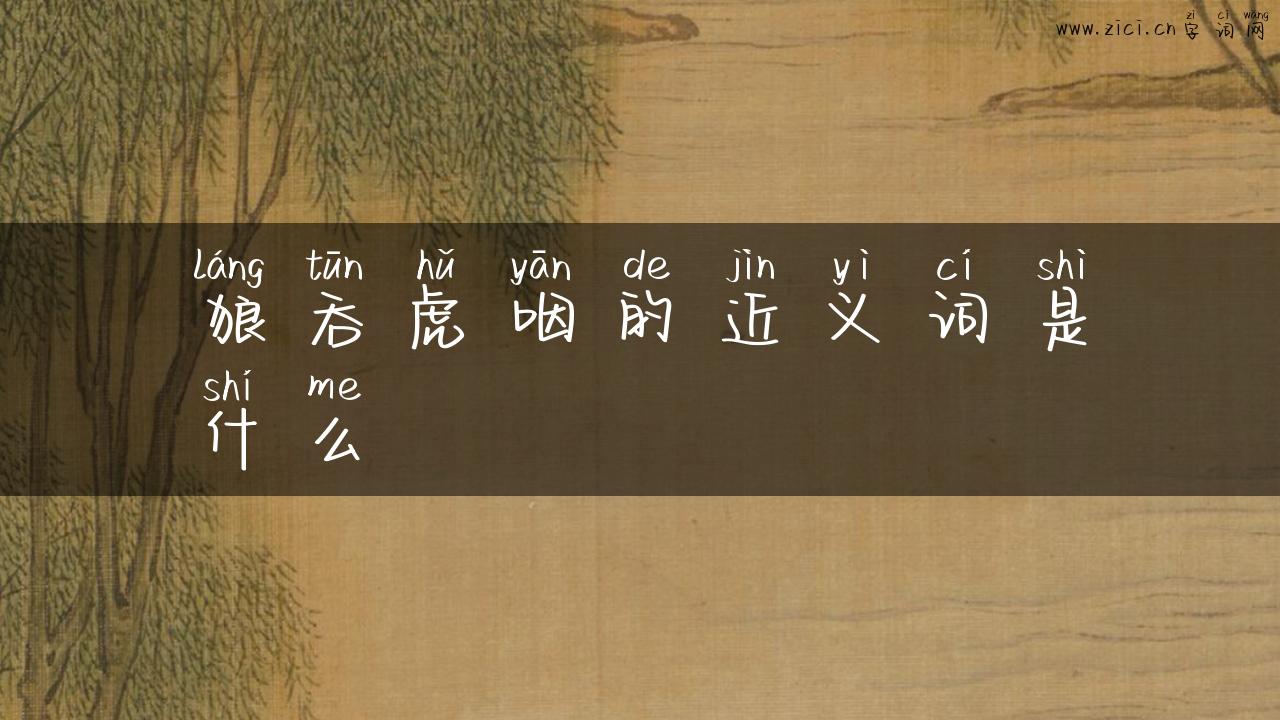 zì cí wǎng
www.zici.cn 字词网
láng tūn hǔ yān de jìn yì cí shì
狼吞虎咽的近义词是
shí me
什么